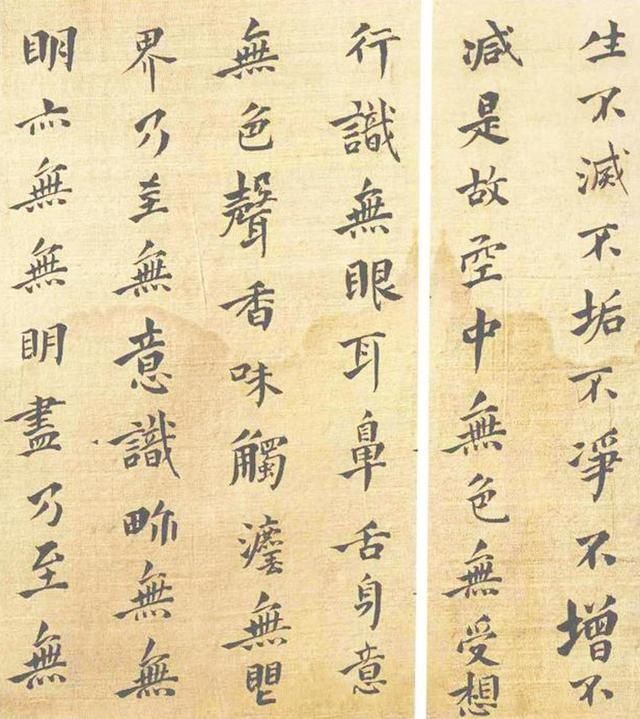 生不滅不垢不凈不增不
減是故空中無色無受想
行識無眼耳鼻舌身意
無色聲香味觸灋無眼
界乃至無意識畍無無
眀亦無無眀盡乃至無